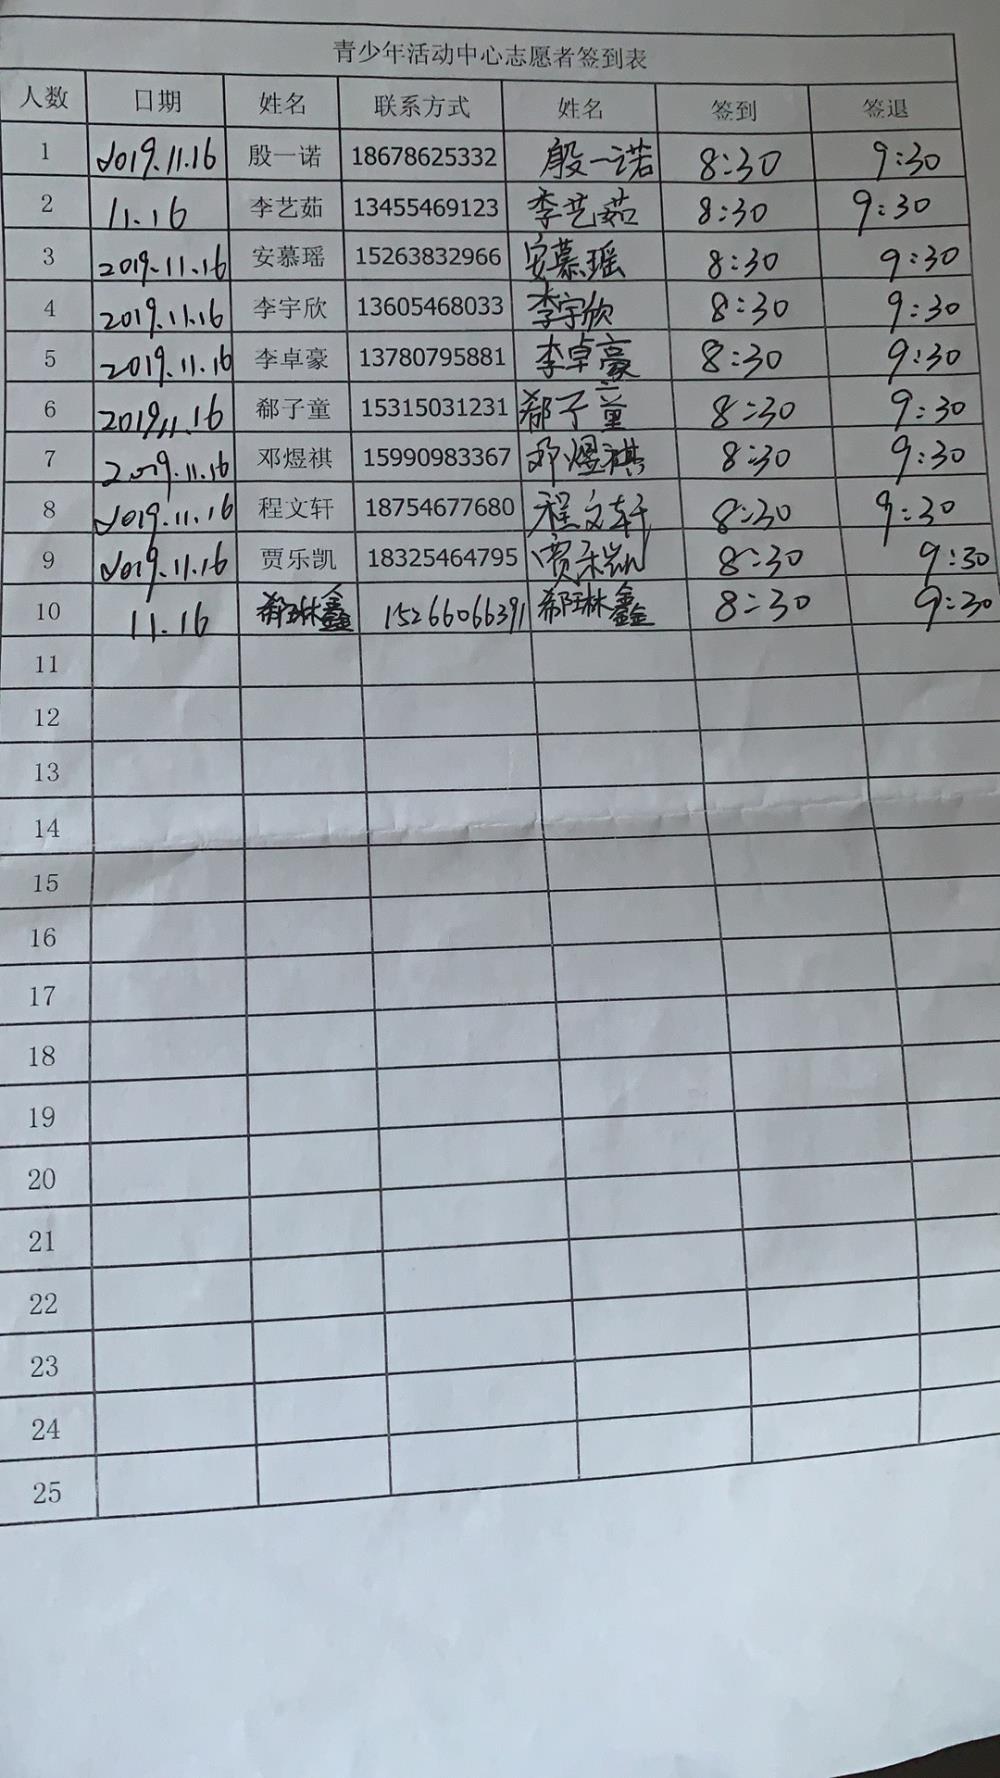 青少年活动中心志愿者签到表
人数 日期 姓名 联系方式 姓名 签到 签退
1 2019.11.16 殷一诺 18678625332 殷一诺 8:30 9:30
2 11.16 李艺茹 13455469123 李艺茹 8:30 9:30
3 2019.11.16 安慕瑶 15263832966 安慕瑶 8:30 9:30
4 2019.11.16 李宇欣 13605468033 李宇欣 8:30 9:30
5 2019.11.16 李卓豪 13780795881 李卓豪 8:30 9:30
6 2019.11.16 郗子童 15315031231 郗子童 8:30 9:30
7 2019.11.16 邓煜祺 15990983367 邓煜祺 8:30 9:30
8 2019.11.16 程文轩 18754677680 程文轩 8:30 9:30
9 2019.11.16 贾乐凯 18325464795 贾乐凯 8:30 9:30
10 11.16 郗琳鑫 15266066391 郗琳鑫 8:30 9:30
11
12
13
14
15
16
17
18
19
20
21
22
23
24
25